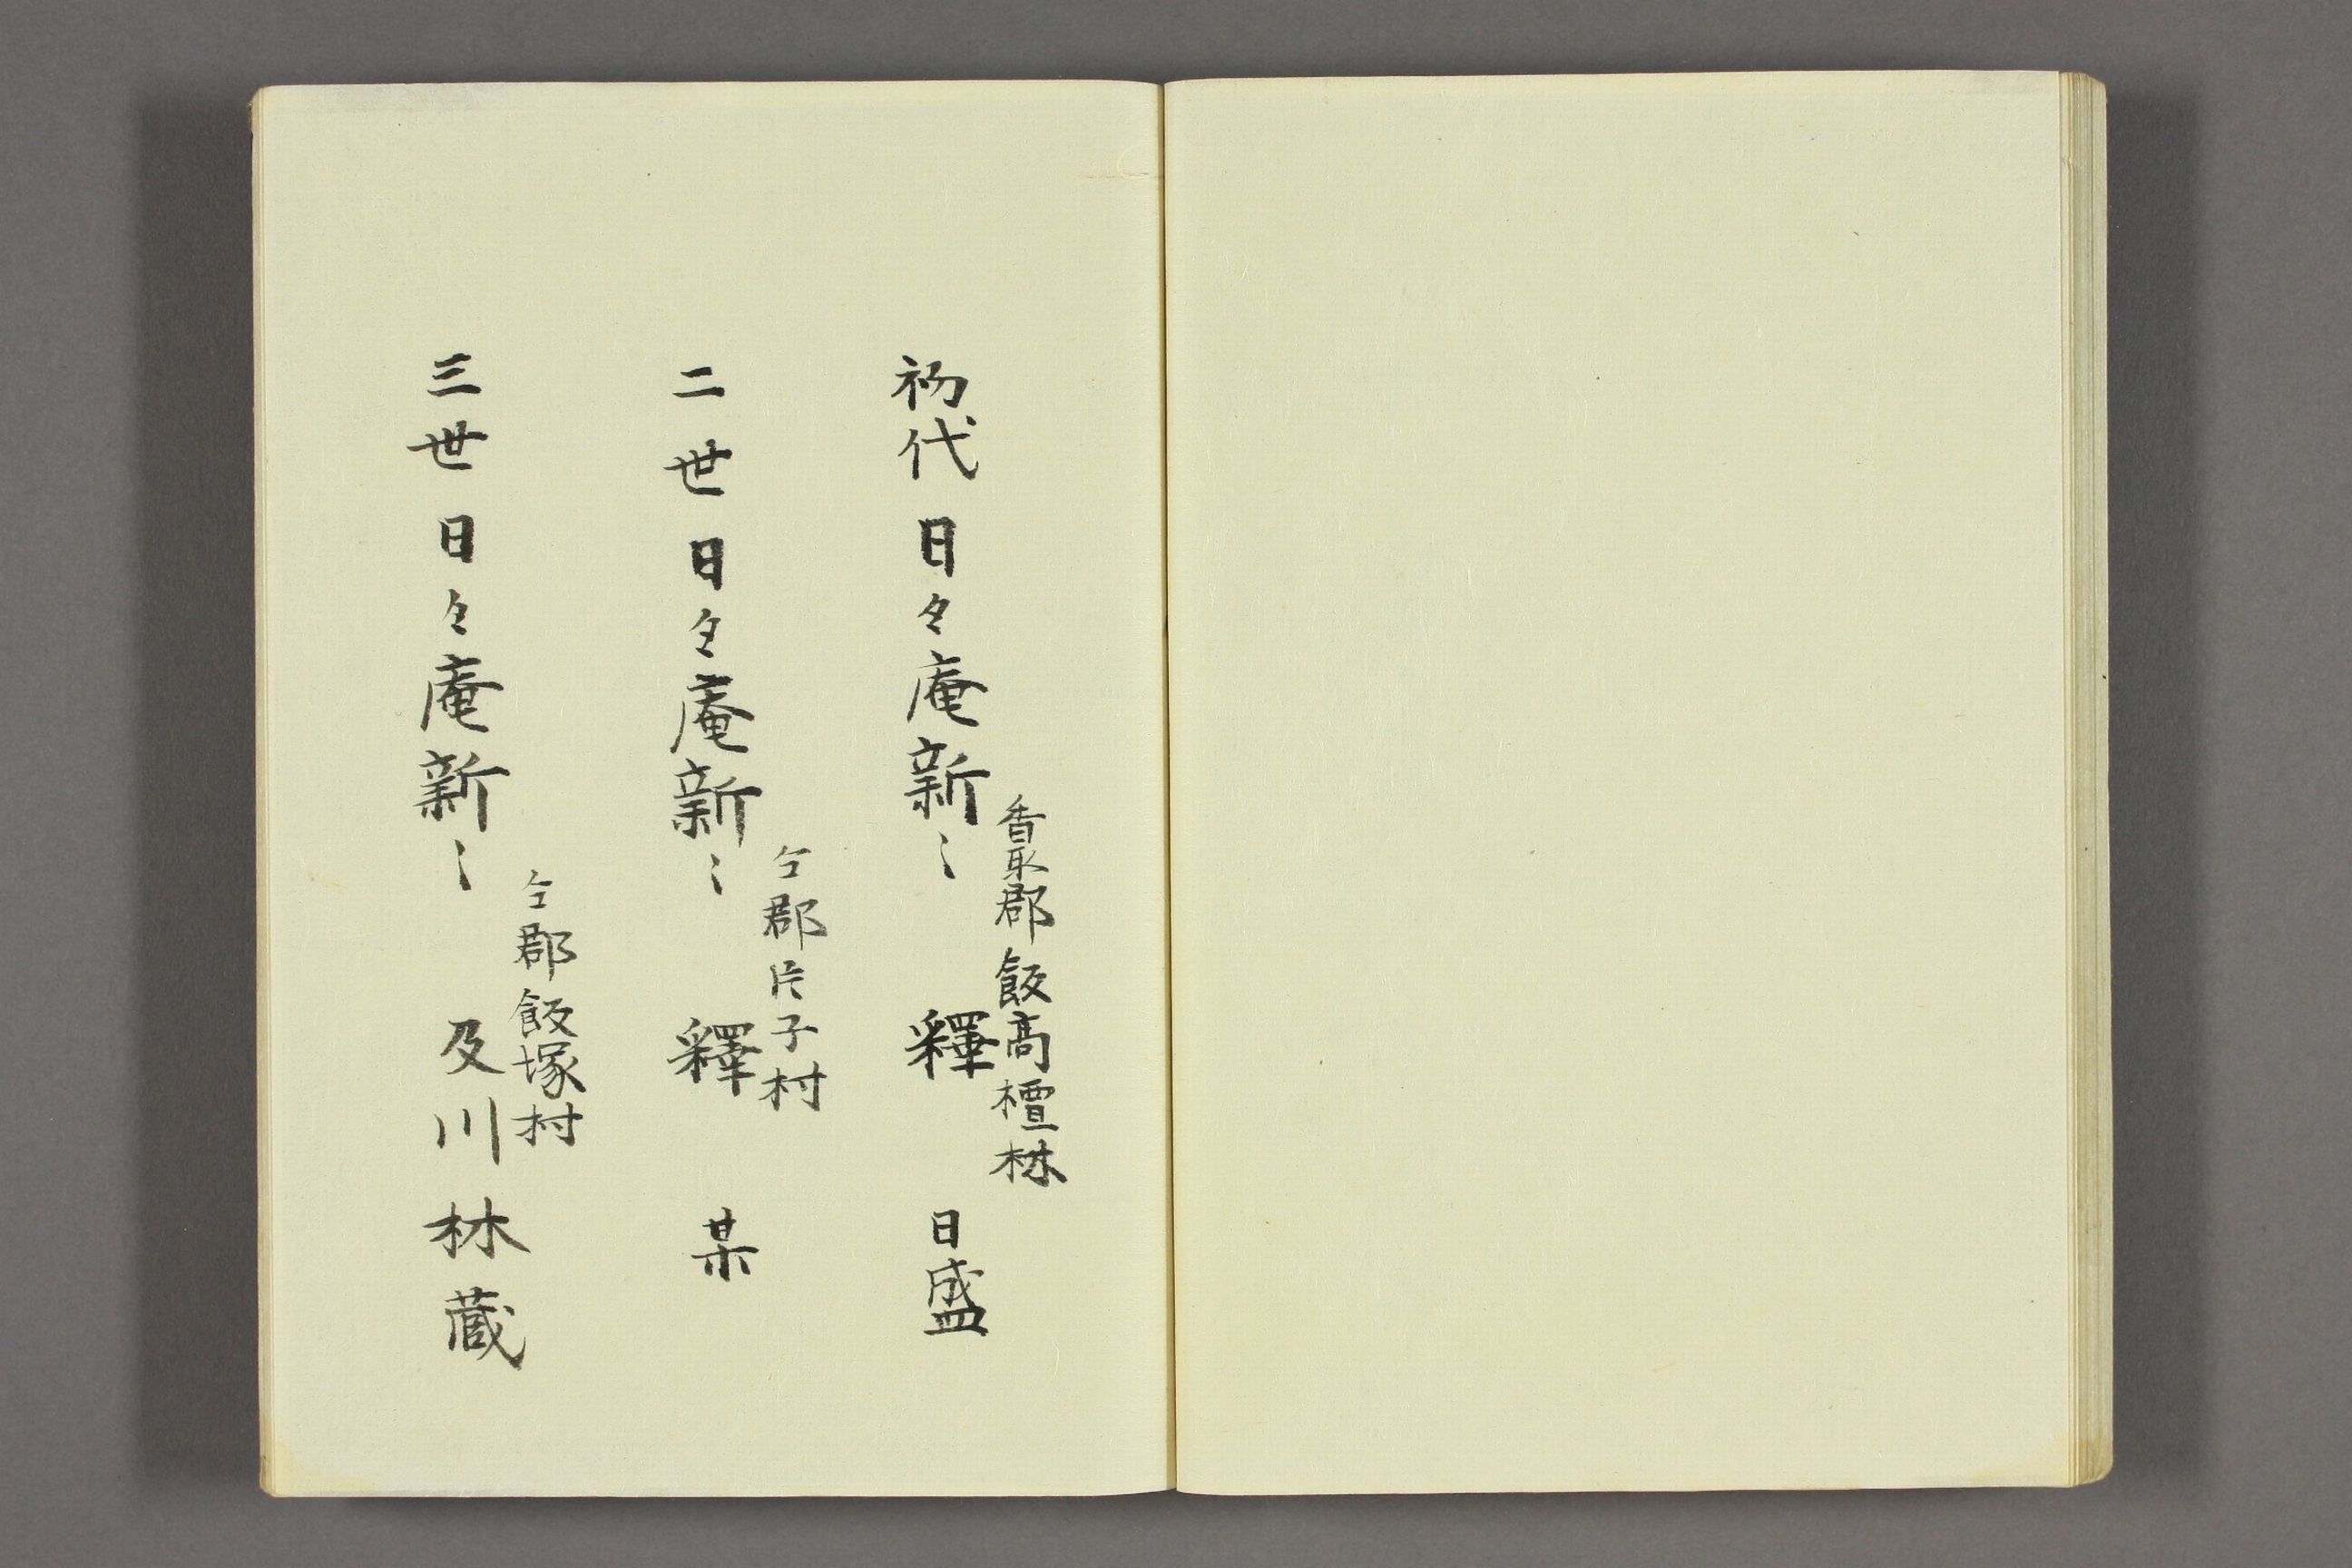 香取郡飯高檀林
初代日々庵新〻 釋 日盛
仝郡片子村
二世日々庵新〻 釋 某
仝郡飯塚村
三世日々庵新〻 及川林蔵